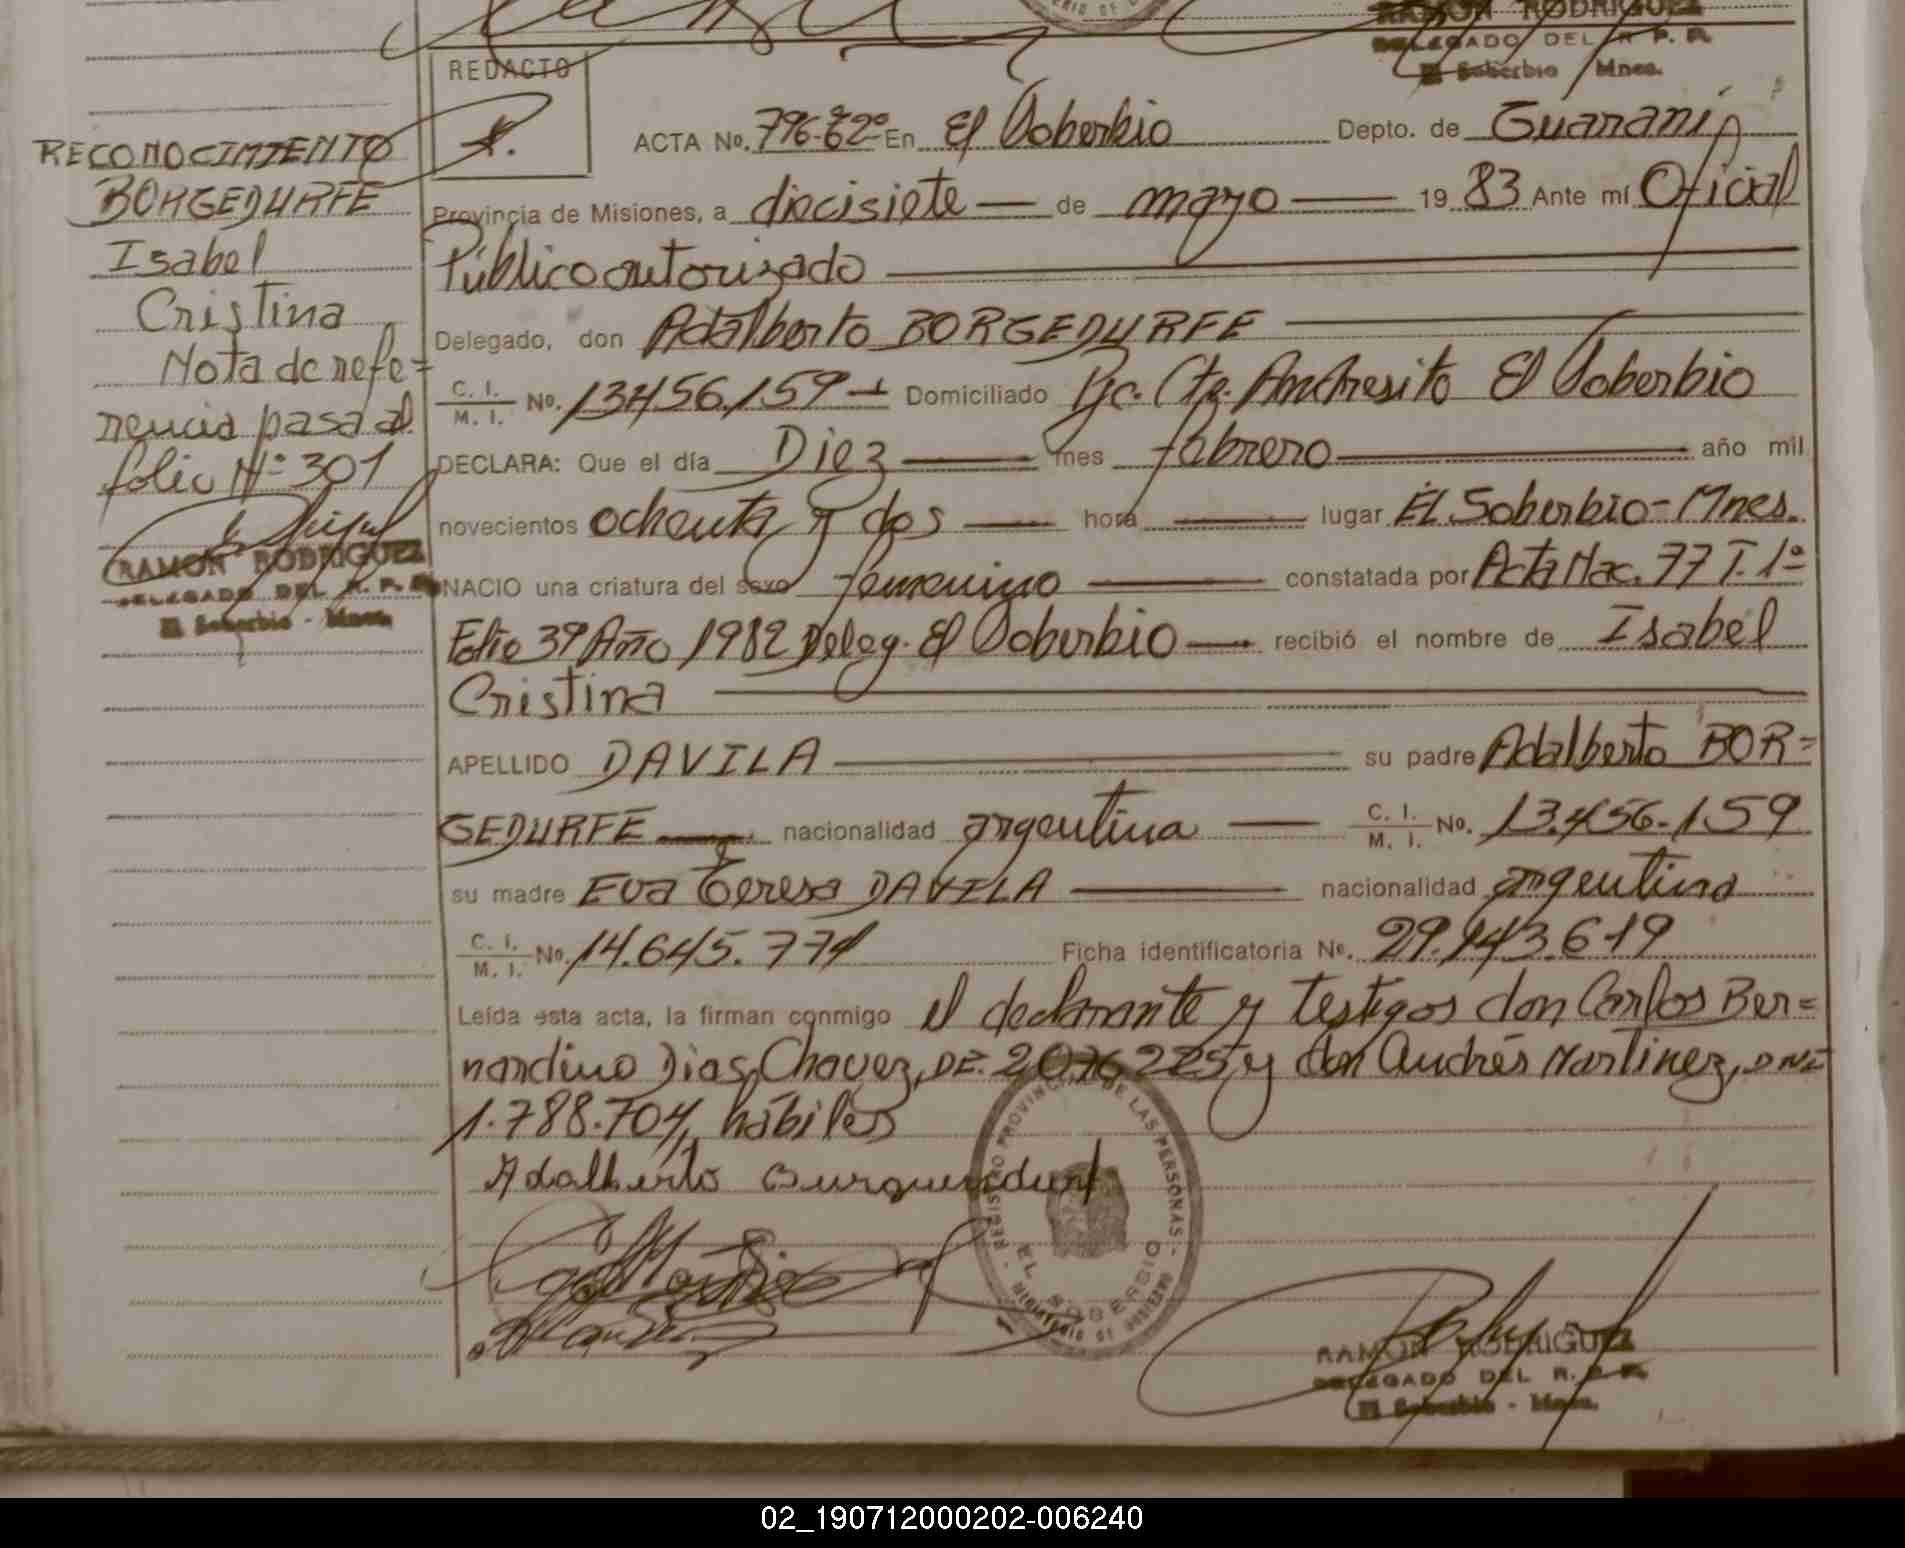 RAMON RODRIGUEZ
DELEGADO DEL R. P. P.
El Soberbio Mnes.
REDACTO
ACTA No. 796-82º En El Soberbio Depto. de Guaraní
Provincia de Misiones, a diecisiete — de mayo — 19 83 Ante mí Oficial
Público autorizado
Delegado, don Adalberto BORGEDURFE
C. I. / M. I. No. 13.456.159 Domiciliado Pje. Cte. Andresito El Soberbio
DECLARA: Que el día Diez — mes febrero — año mil
novecientos ochenta y dos — hora — lugar El Soberbio - Mnes.
NACIO una criatura del sexo femenino — constatada por Acta Nac. 77 T. 1º
Folio 39 Año 1982 Deleg. El Soberbio — recibió el nombre de Isabel
Cristina
APELLIDO DAVILA — su padre Adalberto BOR=
GEDURFE — nacionalidad argentina — C. I. / M. I. No. 13.456.159
su madre Eva Teresa DAVILA — nacionalidad argentina
C. I. / M. I. No. 14.645.771 Ficha identificatoria No. 29.143.619
Leída esta acta, la firman conmigo el declarante y testigos don Carlos Ber=
nardino Dias Chavez, DE. 2076225 y don Andrés Martinez, DNI
1.788.704, hábiles
Adalberto
REGISTRO PROVINCIAL DE LAS PERSONAS
EL SOBERBIO
MINISTERIO DE GOBIERNO
RAMON RODRIGUEZ
DELEGADO DEL R. P. P.
El Soberbio - Mnes.
RECONOCIMIENTO
BORGEDURFE
Isabel
Cristina
Nota de refe=
rencia pasa al
folio Nº 301
RAMON RODRIGUEZ
DELEGADO DEL R. P. P.
El Soberbio - Mnes.
02_190712000202-006240